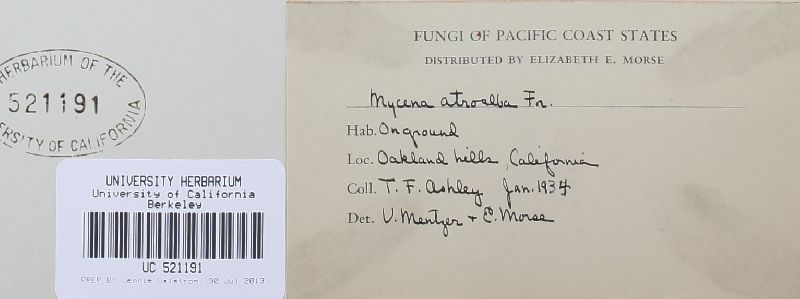 HERBARIUM OF THE
521191
UNIVERSITY OF CALIFORNIA
UNIVERSITY HERBARIUM
University of California
Berkeley
UC 521191
PREP BY Jennie Walstrom, 30 Jul 2013
FUNGI OF PACIFIC COAST STATES
DISTRIBUTED BY ELIZABETH E. MORSE
Mycena atroalba Fr.
Hab. On ground
Loc. Oakland hills, California
Coll. T. F. Ashley Jan. 1934
Det. V. Mentzer + E. Morse